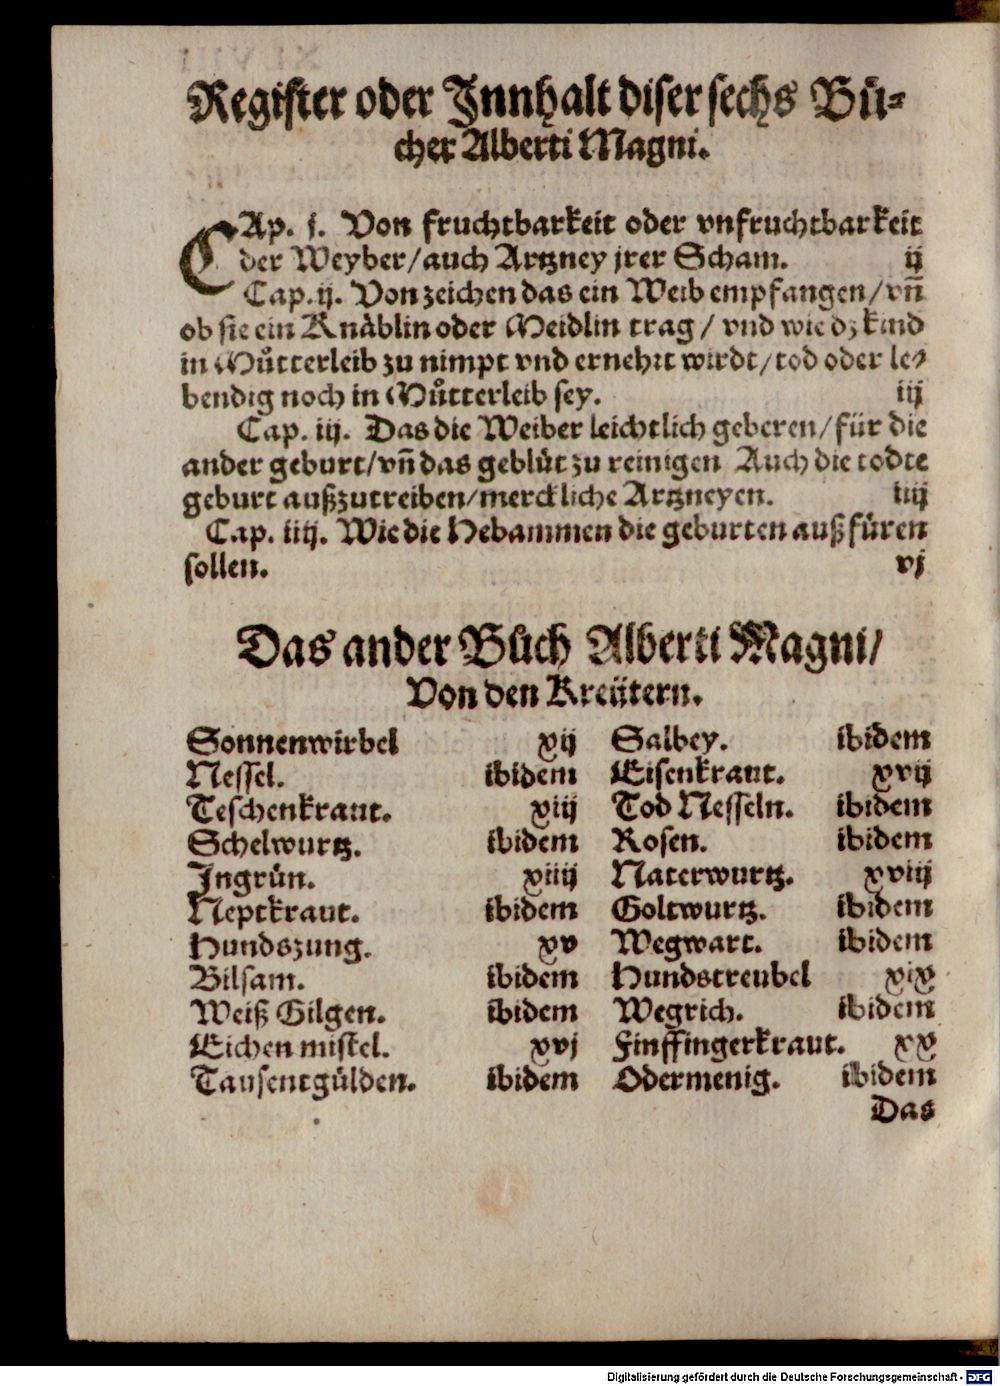 Register oder Innhalt diser sechs Bü-
cher Alberti Magni.
CAp. j. Von fruchtbarkeit oder vnfruchtbarkeit
der Weyber/auch Artzney jrer Scham. ij
Cap.ij. Von zeichen das ein Weib empfangen/vñ
ob sie ein Knäblin oder Meidlin trag/ vnd wie dz kind
in Můtterleib zu nimpt vnd ernehrt wirdt/tod oder le-
bendig noch in Můtterleib sey. iij
Cap. iij. Das die Weiber leichtlich geberen/für die
ander geburt/vñ das geblüt zu reinigen Auch die todte
geburt außzutreiben/merckliche Artzneyen. iiij
Cap. iiij. Wie die Hebammen die geburten auß füren
sollen. vj
Das ander Bůch Alberti Magni/
Von den Kreütern.
Sonnenwirbel xij
Nessel. ibidem
Teschenkraut. xiij
Schelwurtz. ibidem
Ingrün. xiiij
Neptkraut. ibidem
Hundszung. xv
Bilsam. ibidem
Weiß Gilgen. ibidem
Eichen mistel. xvj
Tausentgülden. ibidem
Salbey. ibidem
Eisenkraut. xvij
Tod Nesseln. ibidem
Rosen. ibidem
Naterwurtz. xviij
Goltwurtz. ibidem
Wegwart. ibidem
Hundstreubel xix
Wegrich. ibidem
Finffingerkraut. xx
Odermenig. ibidem
Das
Digitalisierung gefördert durch die Deutsche Forschungsgemeinschaft - DFG